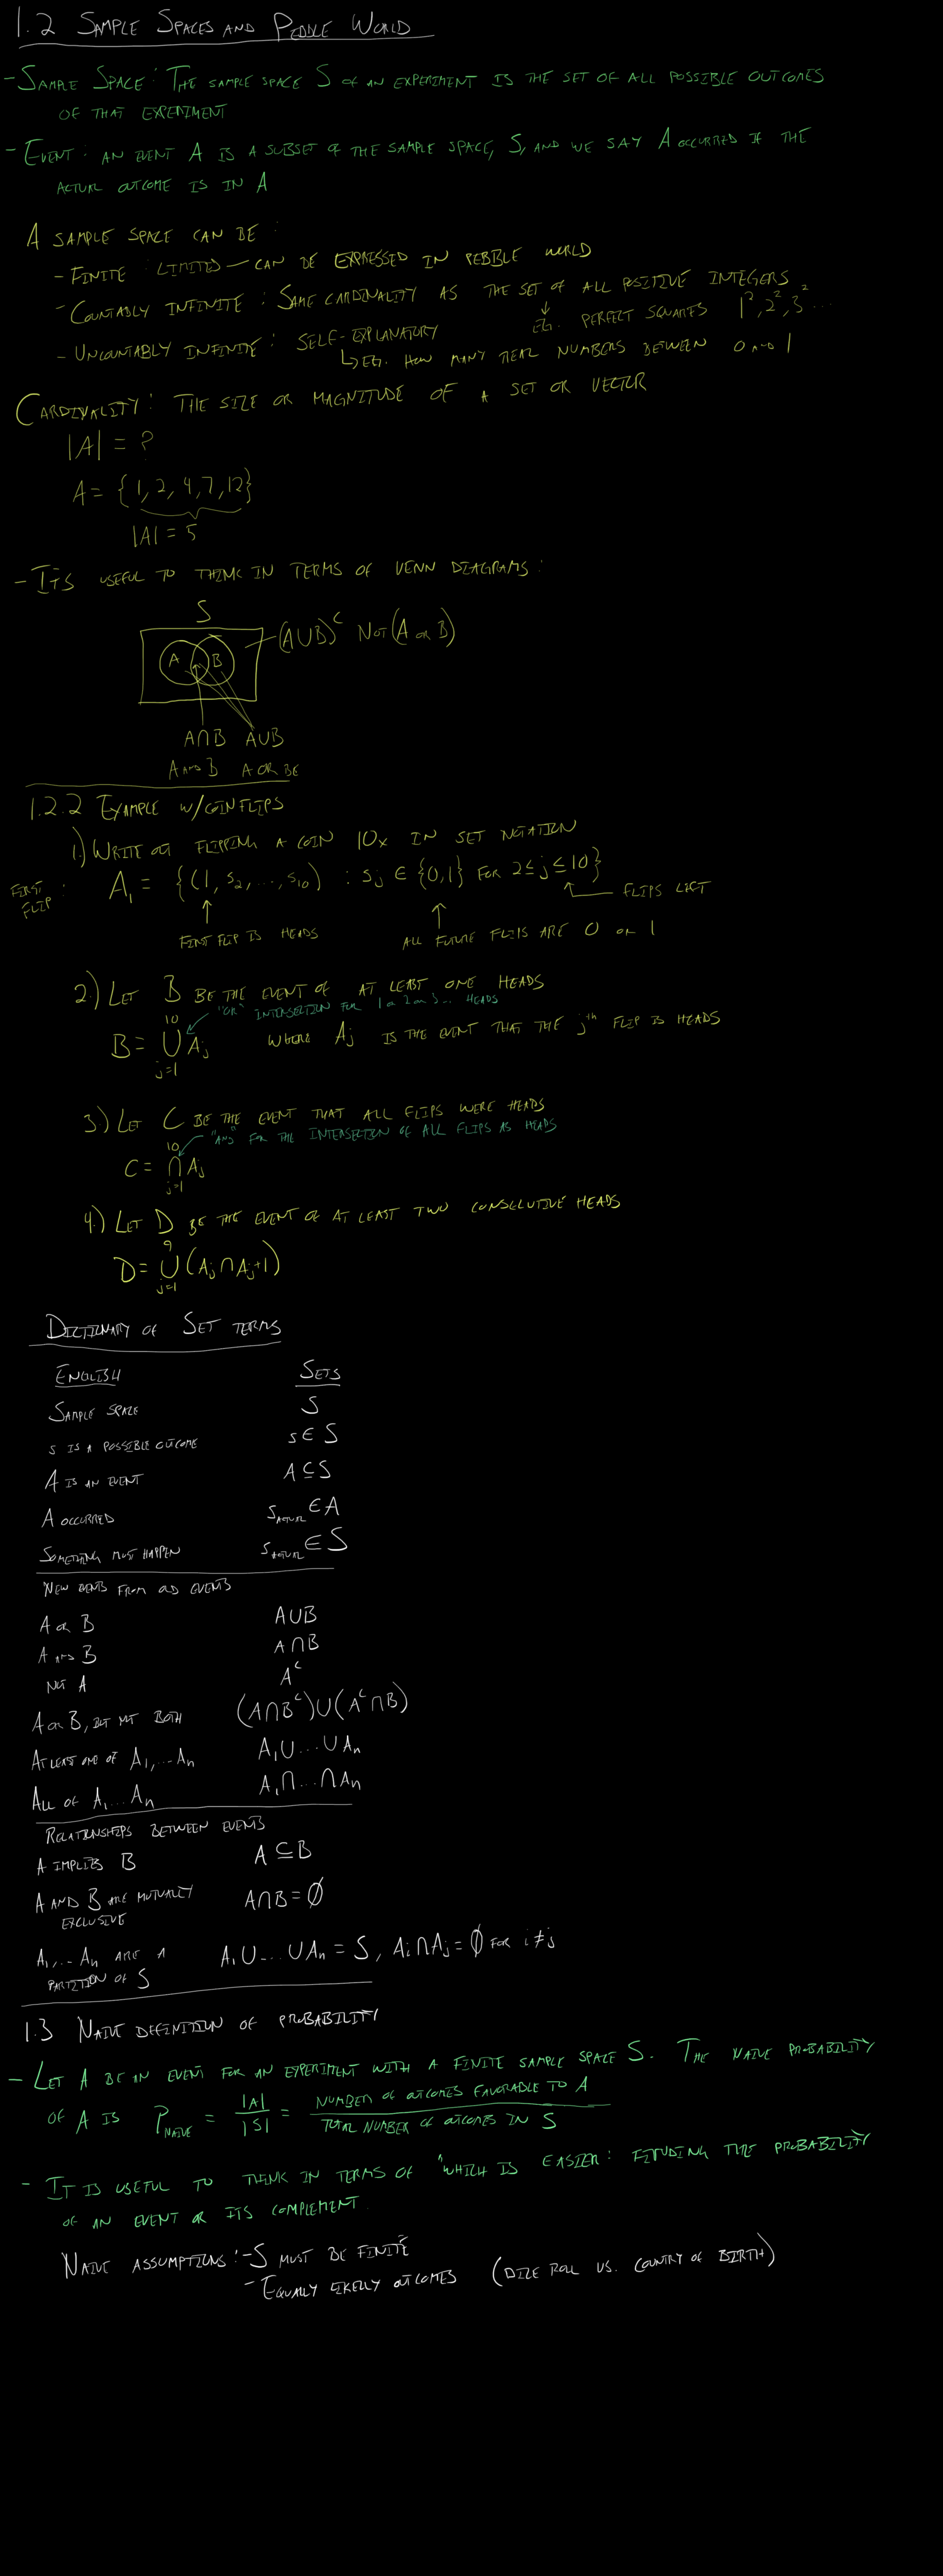 1.2 SAMPLE SPACES AND PEBBLE WORLD
- SAMPLE SPACE: THE SAMPLE SPACE S OF AN EXPERIMENT IS THE SET OF ALL POSSIBLE OUTCOMES
OF THAT EXPERIMENT
- EVENT: AN EVENT A IS A SUBSET OF THE SAMPLE SPACE, S, AND WE SAY A OCCURRED IF THE
ACTUAL OUTCOME IS IN A
A SAMPLE SPACE CAN BE:
- FINITE: LIMITED — CAN BE EXPRESSED IN PEBBLE WORLD
- COUNTABLY INFINITE: SAME CARDINALITY AS THE SET OF ALL POSITIVE INTEGERS
↓ EG. PERFECT SQUARES 1², 2², 3² ...
- UNCOUNTABLY INFINITE: SELF-EXPLANATORY
↳ EG. HOW MANY REAL NUMBERS BETWEEN 0 AND 1
CARDINALITY: THE SIZE OR MAGNITUDE OF A SET OR VECTOR
|A| = ?
A = {1, 2, 4, 7, 12}
|A| = 5
- ITS USEFUL TO THINK IN TERMS OF VENN DIAGRAMS:
S
(A∪B)ᶜ NOT (A OR B)
A B
A∩B A∪B
A AND B A OR BE
1.2.2 EXAMPLE W/COIN FLIPS
1.) WRITE OUT FLIPPING A COIN 10x IN SET NOTATION
FIRST FLIP: A₁ = {(1, s₂, ..., s₁₀) : sⱼ ∈ {0,1} FOR 2 ≤ j ≤ 10}
FLIPS LEFT
FIRST FLIP IS HEADS ALL FUTURE FLIPS ARE 0 OR 1
2.) LET B BE THE EVENT OF AT LEAST ONE HEADS
"OR" INTERSECTION FOR 1 OR 2 OR 3... HEADS
B = ⋃_{j=1}^{10} Aⱼ WHERE Aⱼ IS THE EVENT THAT THE jᵗʰ FLIP IS HEADS
3.) LET C BE THE EVENT THAT ALL FLIPS WERE HEADS
"AND" FOR THE INTERSECTION OF ALL FLIPS AS HEADS
C = ⋂_{j=1}^{10} Aⱼ
4.) LET D BE THE EVENT OF AT LEAST TWO CONSECUTIVE HEADS
D = ⋃_{j=1}^{9} (Aⱼ ∩ Aⱼ+1)
DICTIONARY OF SET TERMS
ENGLISH SETS
SAMPLE SPACE S
s IS A POSSIBLE OUTCOME s ∈ S
A IS AN EVENT A ⊆ S
A OCCURRED S_ACTUAL ∈ A
SOMETHING MUST HAPPEN S_ACTUAL ∈ S
NEW EVENTS FROM OLD EVENTS
A OR B A∪B
A AND B A∩B
NOT A Aᶜ
A OR B, BUT NOT BOTH (A∩Bᶜ)∪(Aᶜ∩B)
AT LEAST ONE OF A₁,...Aₙ A₁∪...∪Aₙ
ALL OF A₁...Aₙ A₁∩...∩Aₙ
RELATIONSHIPS BETWEEN EVENTS
A IMPLIES B A ⊆ B
A AND B ARE MUTUALLY A∩B = ∅
EXCLUSIVE
A₁,...Aₙ ARE A A₁∪...∪Aₙ = S, Aᵢ∩Aⱼ = ∅ FOR i ≠ j
PARTITION OF S
1.3 NAIVE DEFINITION OF PROBABILITY
- LET A BE AN EVENT FOR AN EXPERIMENT WITH A FINITE SAMPLE SPACE S. THE NAIVE PROBABILITY
OF A IS P_NAIVE = |A| / |S| = NUMBER OF OUTCOMES FAVORABLE TO A / TOTAL NUMBER OF OUTCOMES IN S
- IT IS USEFUL TO THINK IN TERMS OF "WHICH IS EASIER: FINDING THE PROBABILITY
OF AN EVENT OR ITS COMPLEMENT.
NAIVE ASSUMPTIONS: - S MUST BE FINITE
- EQUALLY LIKELY OUTCOMES (DICE ROLL VS. COUNTRY OF BIRTH)